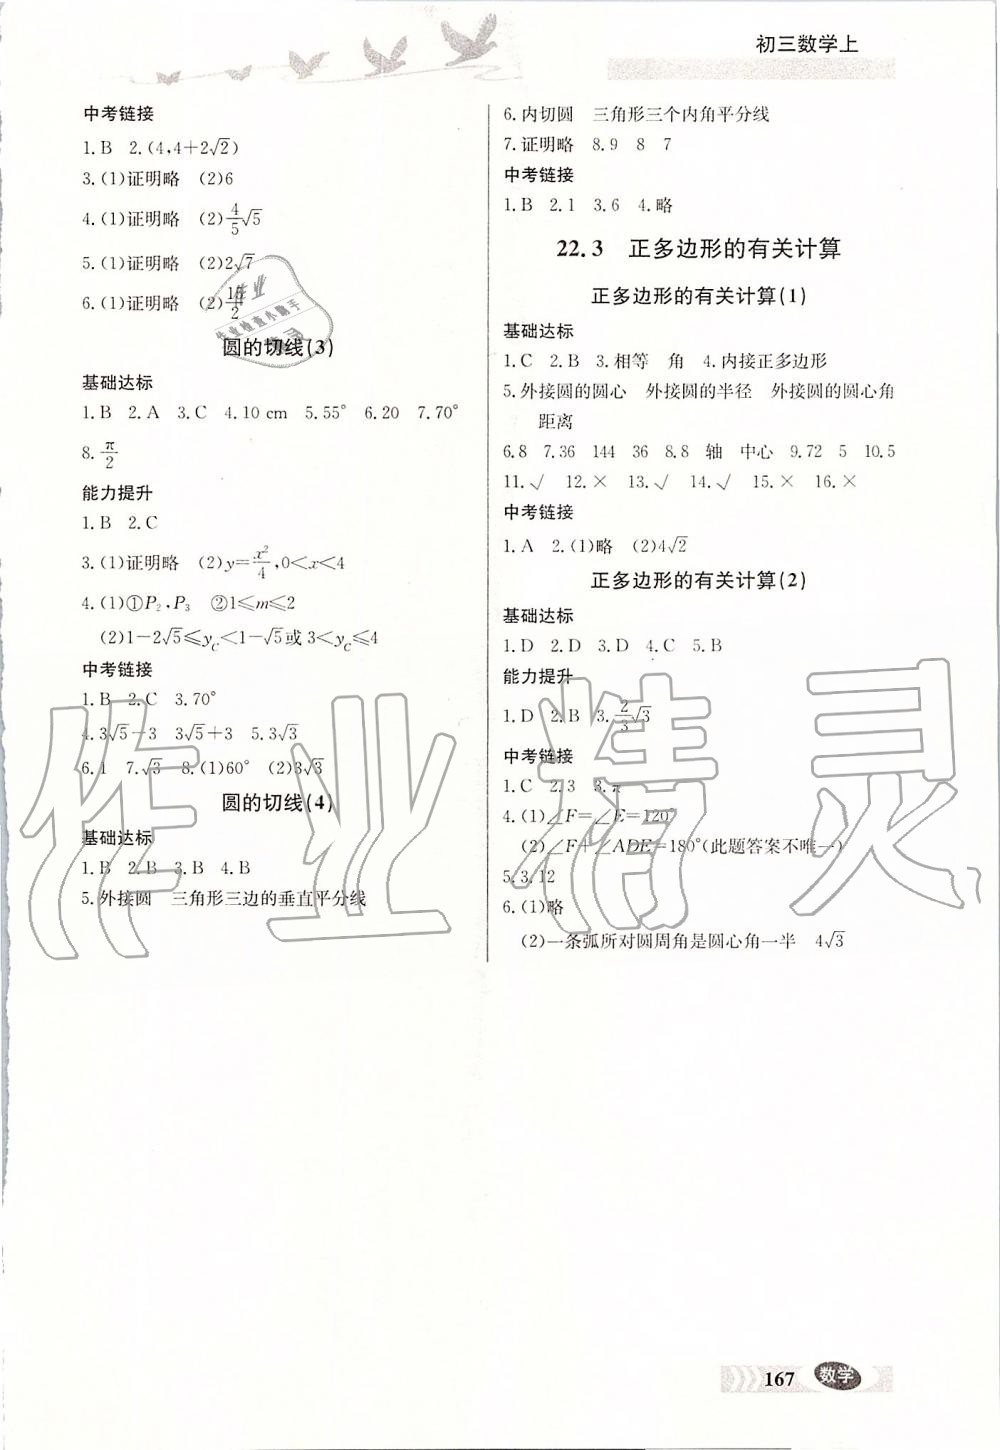 初三数学上
中考链接
1.B 2.(4,4+2√2)
3.(1)证明略 (2)6
4.(1)证明略 (2)4/5√5
5.(1)证明略 (2)2√7
6.(1)证明略 (2)15/2
圆的切线(3)
基础达标
1.B 2.A 3.C 4.10 cm 5.55° 6.20 7.70°
8.π/2
能力提升
1.B 2.C
3.(1)证明略 (2)y=x²/4,0<x<4
4.(1)①P₂,P₃ ②1≤m≤2
(2)1-2√5≤y_C<1-√5或3<y_C≤4
中考链接
1.B 2.C 3.70°
4.3√5-3 3√5+3 5.3√3
6.1 7.√3 8.(1)60° (2)3√3
圆的切线(4)
基础达标
1.B 2.B 3.B 4.B
5.外接圆 三角形三边的垂直平分线
6.内切圆 三角形三个内角平分线
7.证明略 8.9 8 7
中考链接
1.B 2.1 3.6 4.略
22.3 正多边形的有关计算
正多边形的有关计算(1)
基础达标
1.C 2.B 3.相等 角 4.内接正多边形
5.外接圆的圆心 外接圆的半径 外接圆的圆心角
距离
6.8 7.36 144 36 8.8 轴 中心 9.72 5 10.5
11.√ 12.× 13.√ 14.√ 15.× 16.×
中考链接
1.A 2.(1)略 (2)4√2
正多边形的有关计算(2)
基础达标
1.D 2.D 3.D 4.C 5.B
能力提升
1.D 2.B 3.2/3√3
中考链接
1.C 2.3 3.π
4.(1)∠F=∠E=120°
(2)∠F+∠ADE=180°(此题答案不唯一)
5.3.12
6.(1)略
(2)一条弧所对圆周角是圆心角一半 4√3
作业精灵
作业
作业检查小助手
167 数学